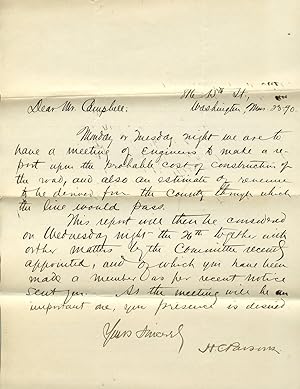 816 15th St,
Washington, Mar. 23-90
Dear Mr. Campbell:
Monday or Tuesday night we are to
have a meeting of Engineers to make a re-
port upon the probable cost of construction of
the road, and also an estimate of revenue
to be derived from the County through which
the line would pass.
This report will then be considered
on Wednesday night the 26th together with
other matters by the Committee recently
appointed, and of which you have been
made a member as per recent notice
sent you. As the meeting will be an
important one, your presence is desired
Yours Sincerely
H C Parsons